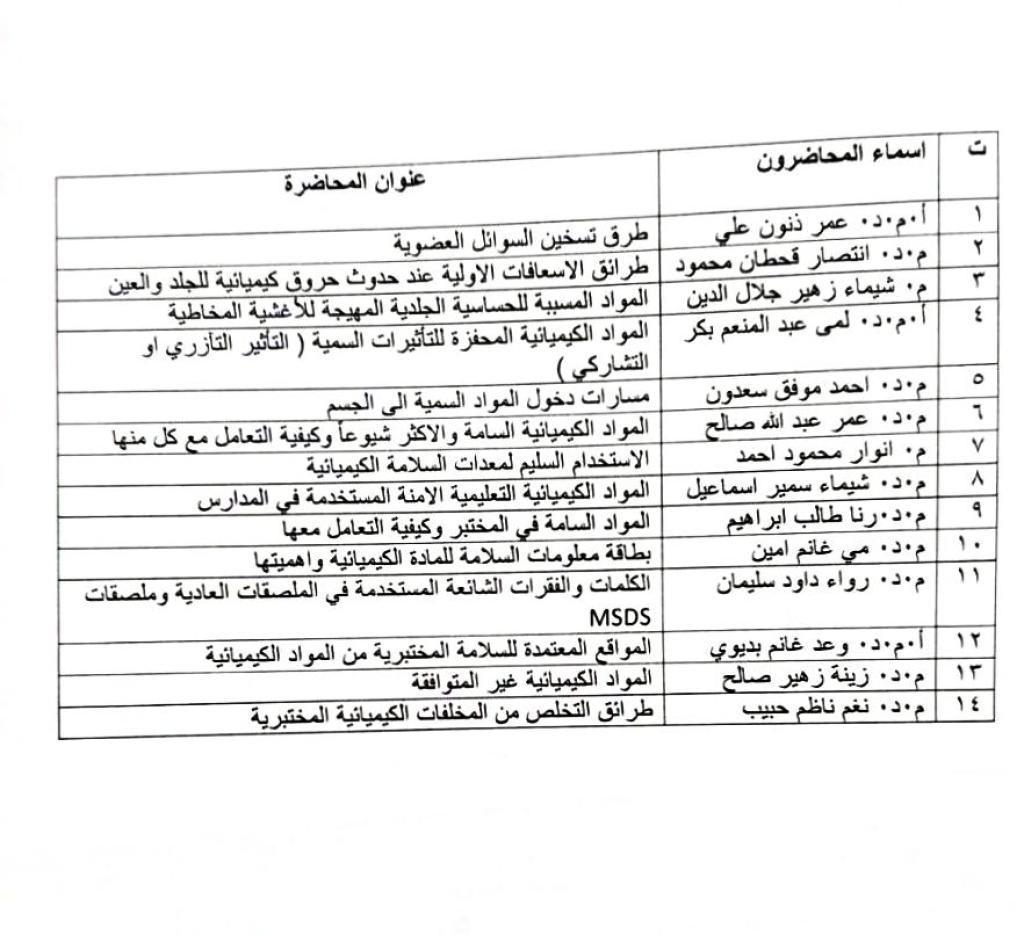 ت اسماء المحاضرون عنوان المحاضرة
١ أ٠م٠د٠ عمر ذنون علي طرق تسخين السوائل العضوية
٢ م٠د٠ انتصار قحطان محمود طرائق الاسعافات الاولية عند حدوث حروق كيميائية للجلد والعين
٣ م٠ شيماء زهير جلال الدين المواد المسببة للحساسية الجلدية المهيجة للأغشية المخاطية
٤ أ٠م٠د٠ لمى عبد المنعم بكر المواد الكيميائية المحفزة للتأثيرات السمية ( التأثير التآزري او
التشاركي )
٥ م٠د٠ احمد موفق سعدون مسارات دخول المواد السمية الى الجسم
٦ م٠د٠ عمر عبد الله صالح المواد الكيميائية السامة والاكثر شيوعاً وكيفية التعامل مع كل منها
٧ م٠ انوار محمود احمد الاستخدام السليم لمعدات السلامة الكيميائية
٨ م٠د٠ شيماء سمير اسماعيل المواد الكيميائية التعليمية الامنة المستخدمة في المدارس
٩ م٠د٠رنا طالب ابراهيم المواد السامة في المختبر وكيفية التعامل معها
١٠ م٠د٠ مي غانم امين بطاقة معلومات السلامة للمادة الكيميائية واهميتها
١١ م٠د٠ رواء داود سليمان الكلمات والفقرات الشائعة المستخدمة في الملصقات العادية وملصقات
MSDS
١٢ أ٠م٠د٠ وعد غانم بديوي المواقع المعتمدة للسلامة المختبرية من المواد الكيميائية
١٣ م٠د٠ زينة زهير صالح المواد الكيميائية غير المتوافقة
١٤ م٠د٠ نغم ناظم حبيب طرائق التخلص من المخلفات الكيميائية المختبرية